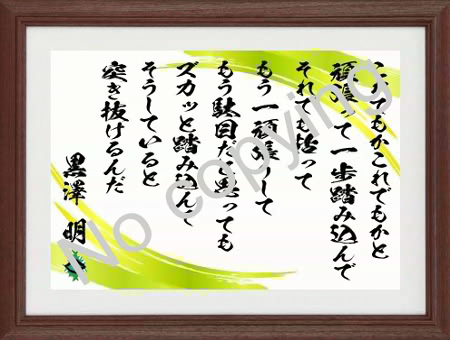 これでもかこれでもかと
頑張って一歩踏み込んで
それでも粘って
もう一頑張りして
もう駄目だと思っても
ズカッと踏み込んで
そうしていると
突き抜けるんだ
黒澤 明
No copying